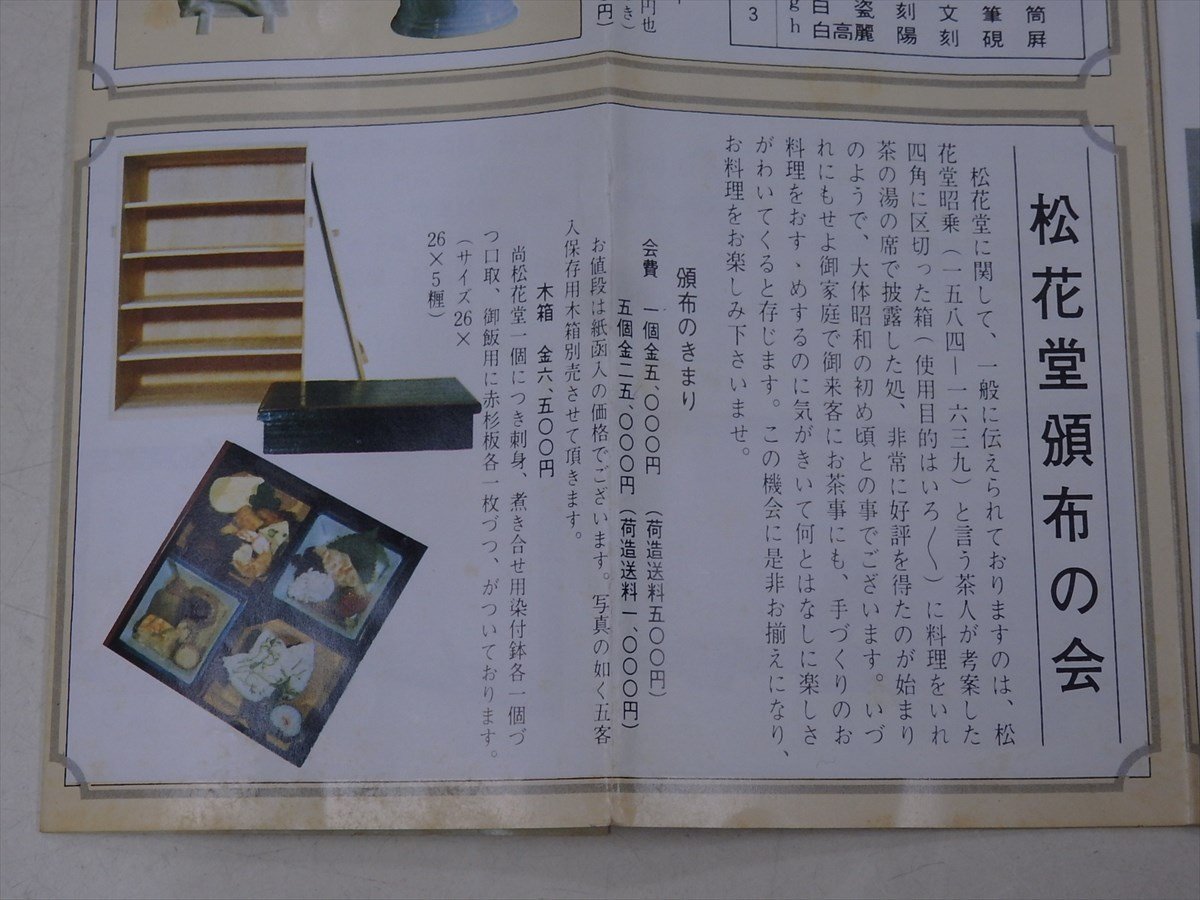 筒
屛
筆
硯
文
刻
刻
陽
瓷
高麗
白
白
gh
3
円也
き)
円)
松花堂頒布の会
松花堂に関して、一般に伝えられておりますのは、松
花堂昭乗(一五八四—一六三九)と言う茶人が考案した
四角に区切った箱(使用目的はいろ〱)に料理をいれ
茶の湯の席で披露した処、非常に好評を得たのが始まり
のようで、大体昭和の初め頃との事でございます。いづ
れにもせよ御家庭で御来客にお茶事にも、手づくりのお
料理をおすゝめするのに気がきいて何とはなしに楽しさ
がわいてくると存じます。この機会に是非お揃えになり、
お料理をお楽しみ下さいませ。
頒布のきまり
会費 一個金五、〇〇〇円(荷造送料五〇〇円)
五個金二五、〇〇〇円(荷造送料一、〇〇〇円)
お値段は紙函入の価格でございます。写真の如く五客
入保存用木箱別売させて頂きます。
木箱 金六、五〇〇円
尚松花堂一個につき刺身、煮き合せ用染付鉢各一個づ
つ口取、御飯用に赤杉板各一枚づつ、がついております。
(サイズ26×
26×5糎)